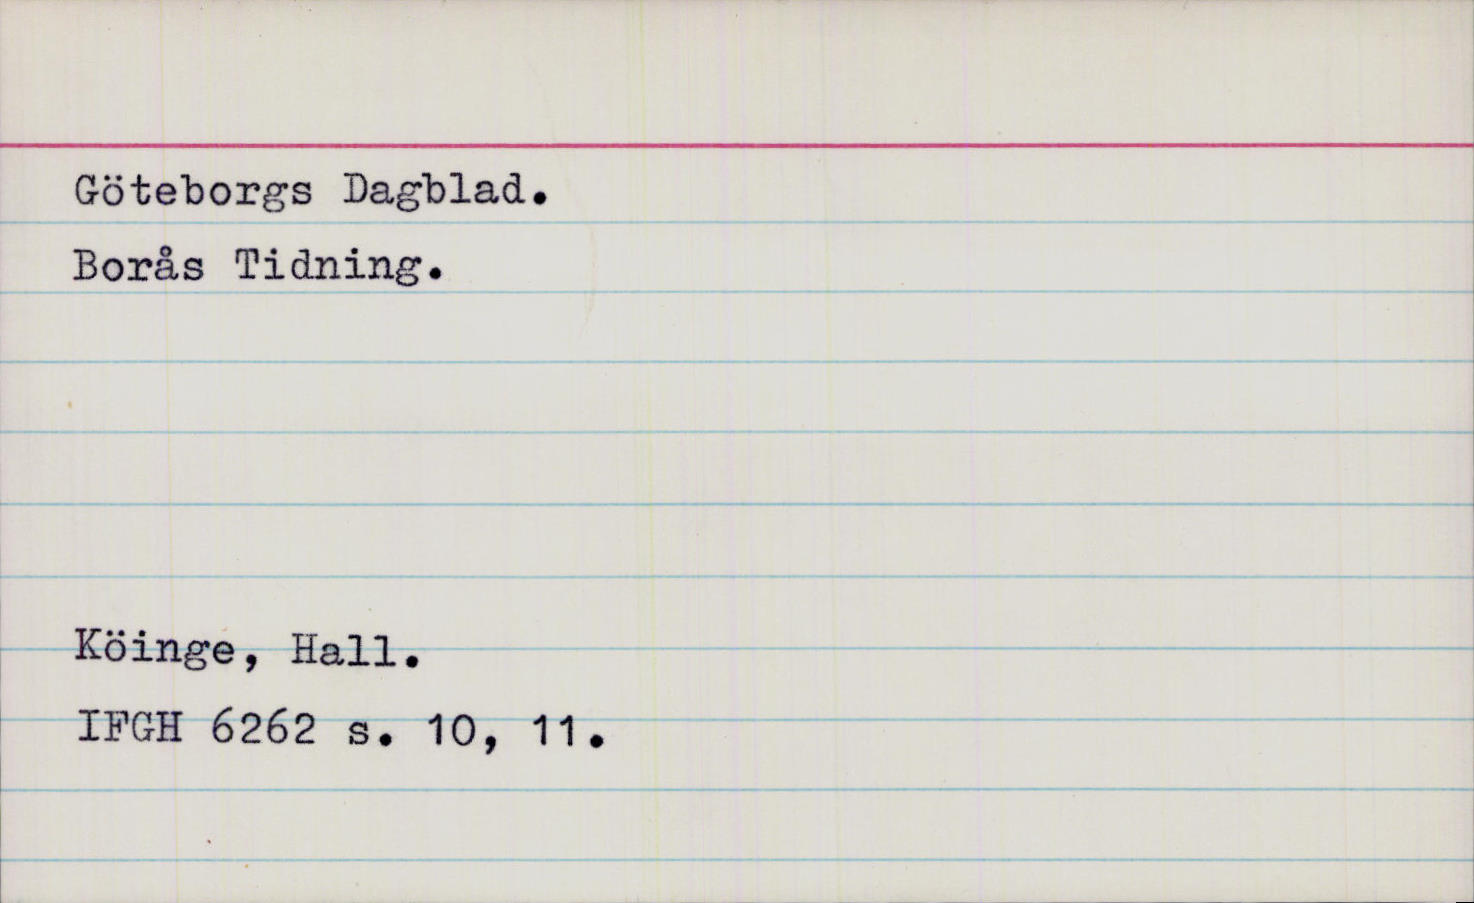 Göteborgs Dagblad.
Borås Tidning.
Köinge, Hall.
IFGH 6262 s. 10, 11.